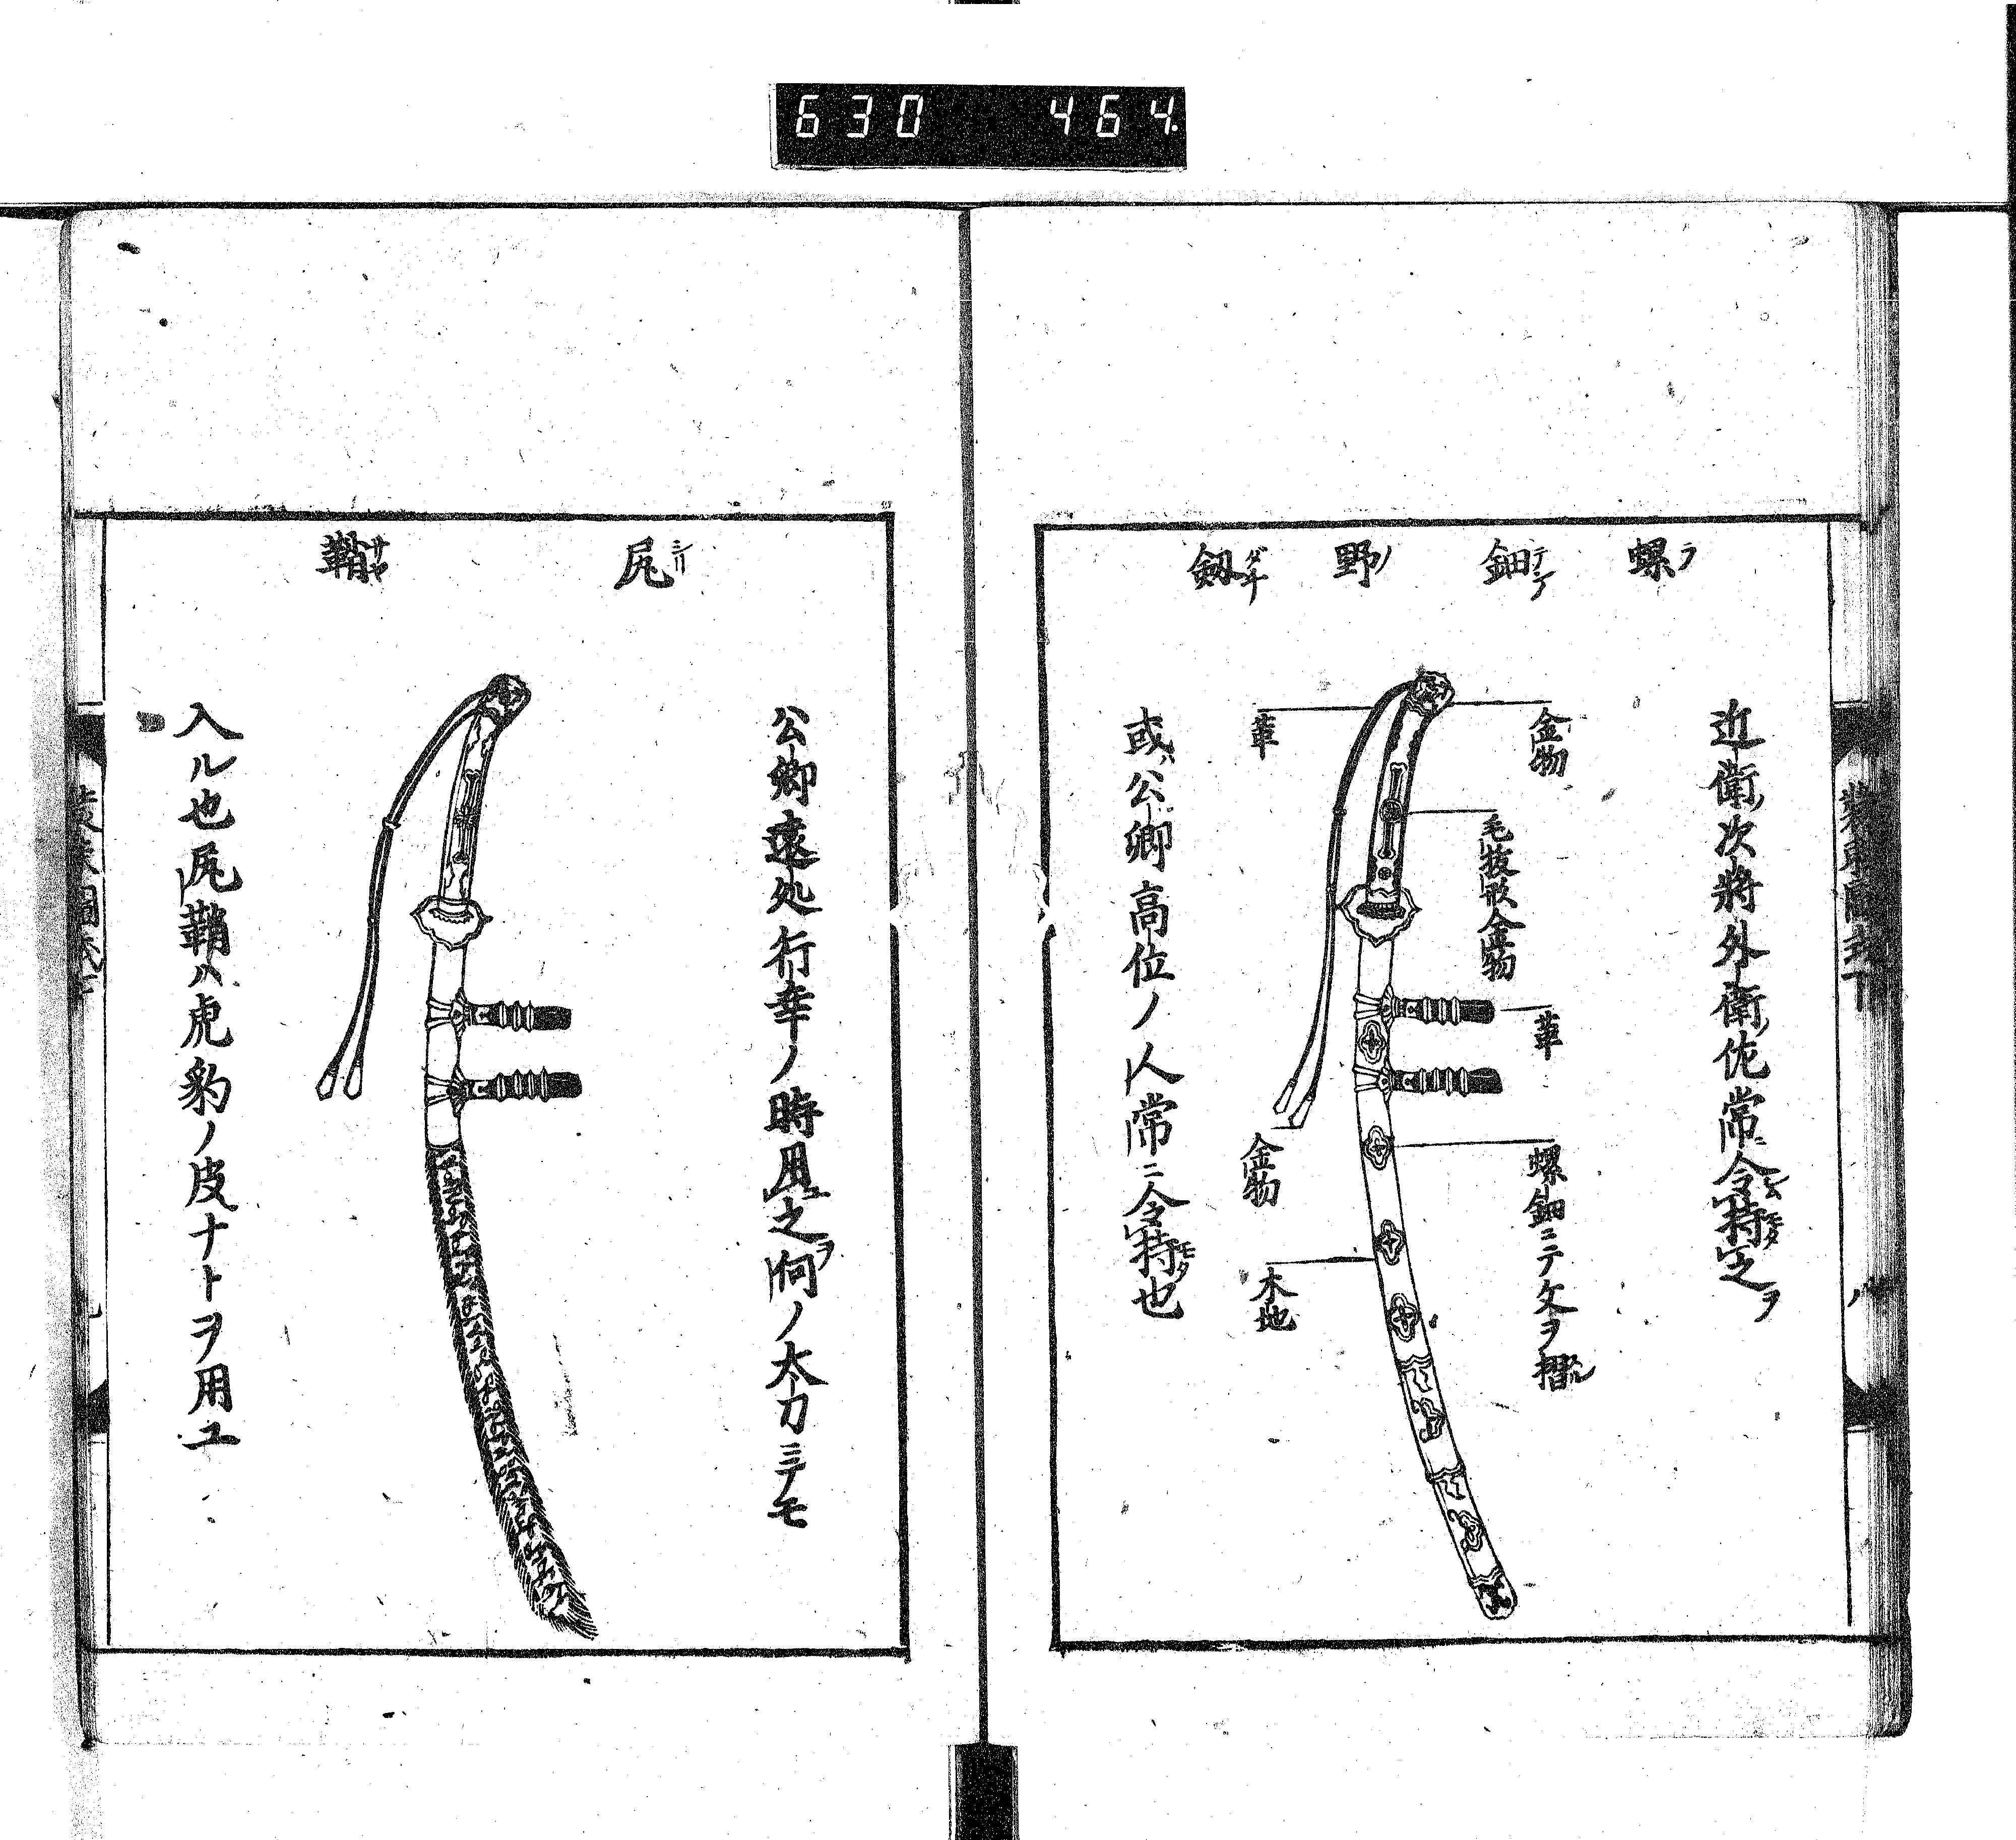 630 464.
螺鈿野剱
ラ デン ノ ダチ
近衛次將外衛佐常令持之ヲ
金物
毛抜形金物
革
螺鈿ニテ文ヲ摺
革
金物
木地
或ハ公卿高位ノ人常ニ令持也
尻鞘
シリ サヤ
公卿遠処行幸ノ時用之ヲ何ノ太刀ニテモ
入ル也尻鞘ハ虎豹ノ皮ナトヲ用ユ